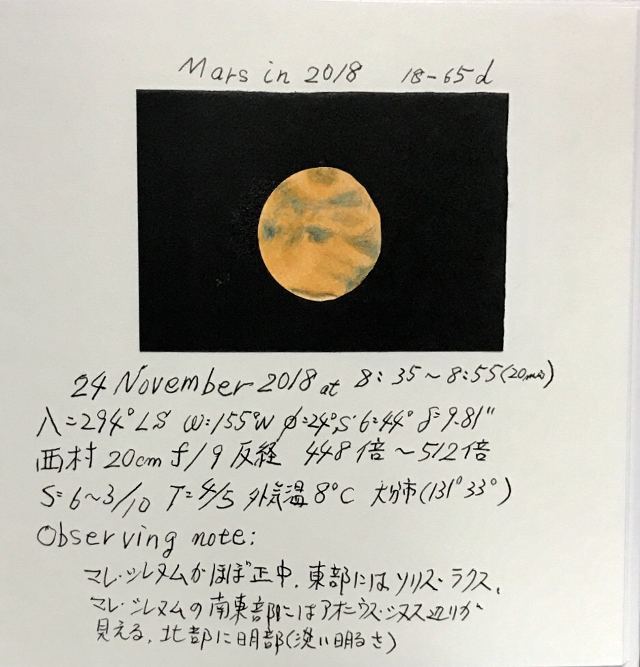 Mars in 2018 18-65d
24 November 2018 at 8:35~8:55(20min)
λ=294°LS ω=155°W φ=24°S 6=44° δ=9.81"
西村 20cm f/9 反経 448倍~512倍
S=6~3/10 T=4/5 外気温 8°C 大分市(131°33°)
Observing note:
マレ・シレヌムがほぼ正中、東部にはソリス・ラクス、
マレ・シレヌムの南東部にはアオニウス・シヌス辺りが
見える、北部に明部(淡い明るさ)